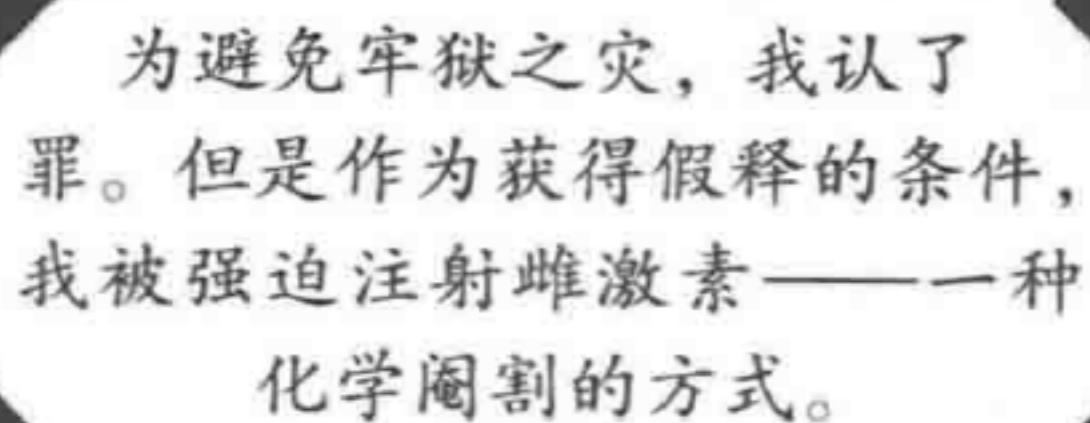 为避免牢狱之灾，我认了
罪。但是作为获得假释的条件，
我被强迫注射雌激素——一种
化学阉割的方式。